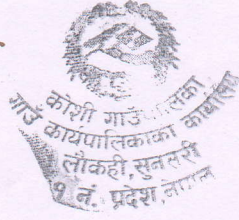 कोशी गाउँपालिका
गाउँ कार्यपालिकाको कार्यालय
लौकही, सुनसरी
१ नं. प्रदेश, नेपाल